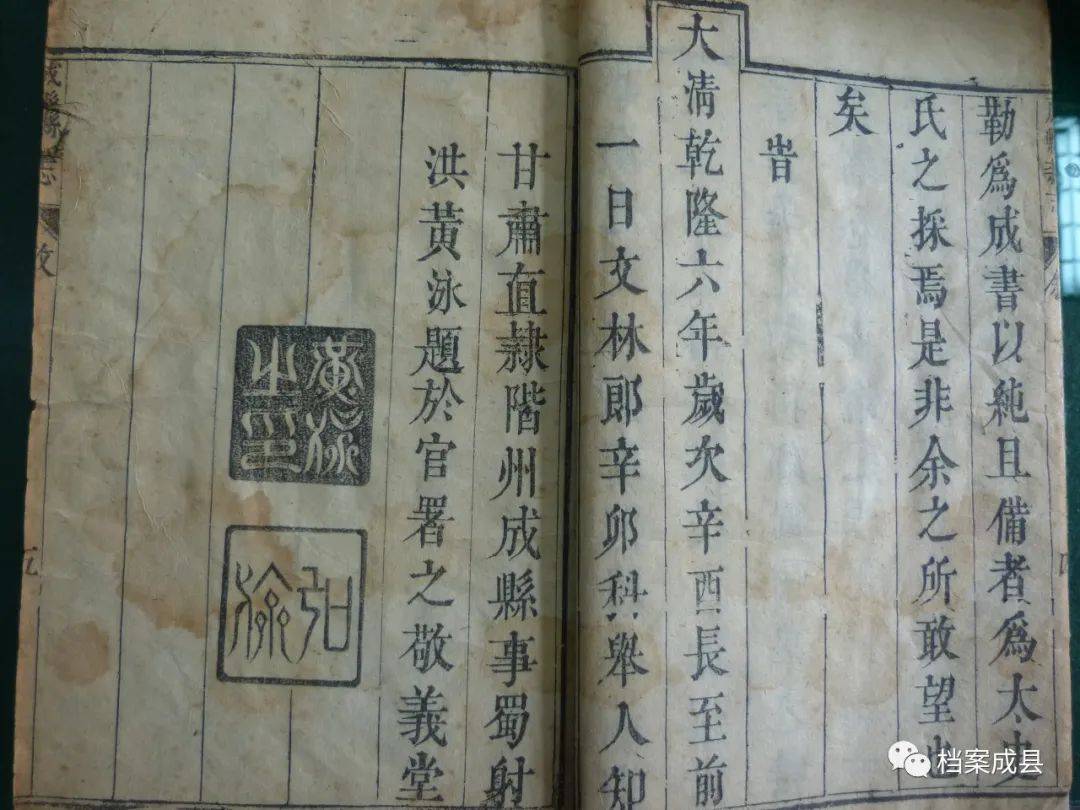 勒爲成書以純且備者爲太史
氏之採焉是非余之所敢望也
矣
旹
大清乾隆六年歲次辛酉長至前
一日文林郎辛卯科舉人知
甘肅直隸階州成縣事蜀射
洪黃泳題於官署之敬義堂
黃泳之印
弘
成縣志
五
档案成县